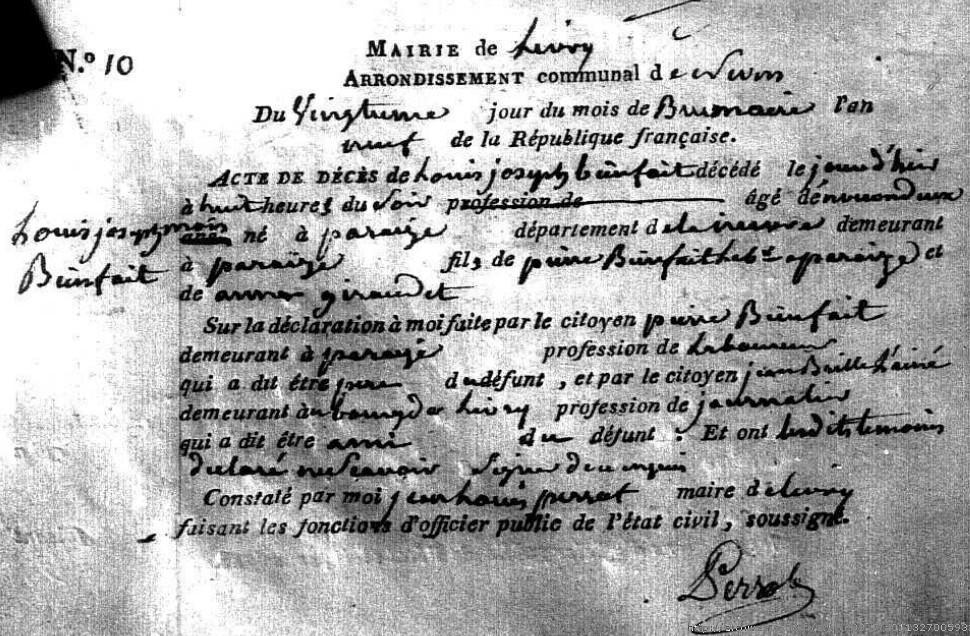 N.º 10
MAIRIE de Livry
ARRONDISSEMENT communal de
Du Vingtieme jour du mois de Brumaire l'an
neuf de la République française.
ACTE DE DÉCÈS de Louis joseph bienfait décédé le jourd'huis
à huit heures du Soir profession de âgé
mois
né à paraize département de la nievre demeurant
à paraize fils de pierre Bienfait a paraize et
de anne giraudet
Louis joseph
Bienfait
Sur la déclaration à moi faite par le citoyen pierre Bienfait
demeurant à paraize profession de laboureur
qui a dit être pere du défunt, et par le citoyen jean l'ainé
demeurant au bourg de Livry profession de journalier
qui a dit être ami du défunt. Et ont lesdits temoins
declaré ne Scavoir Signer de ce enquis
Constaté par moi jean louis perrot maire de Livry
faisant les fonctions d'officier public de l'état civil, soussigné.
Perrot
01132700593